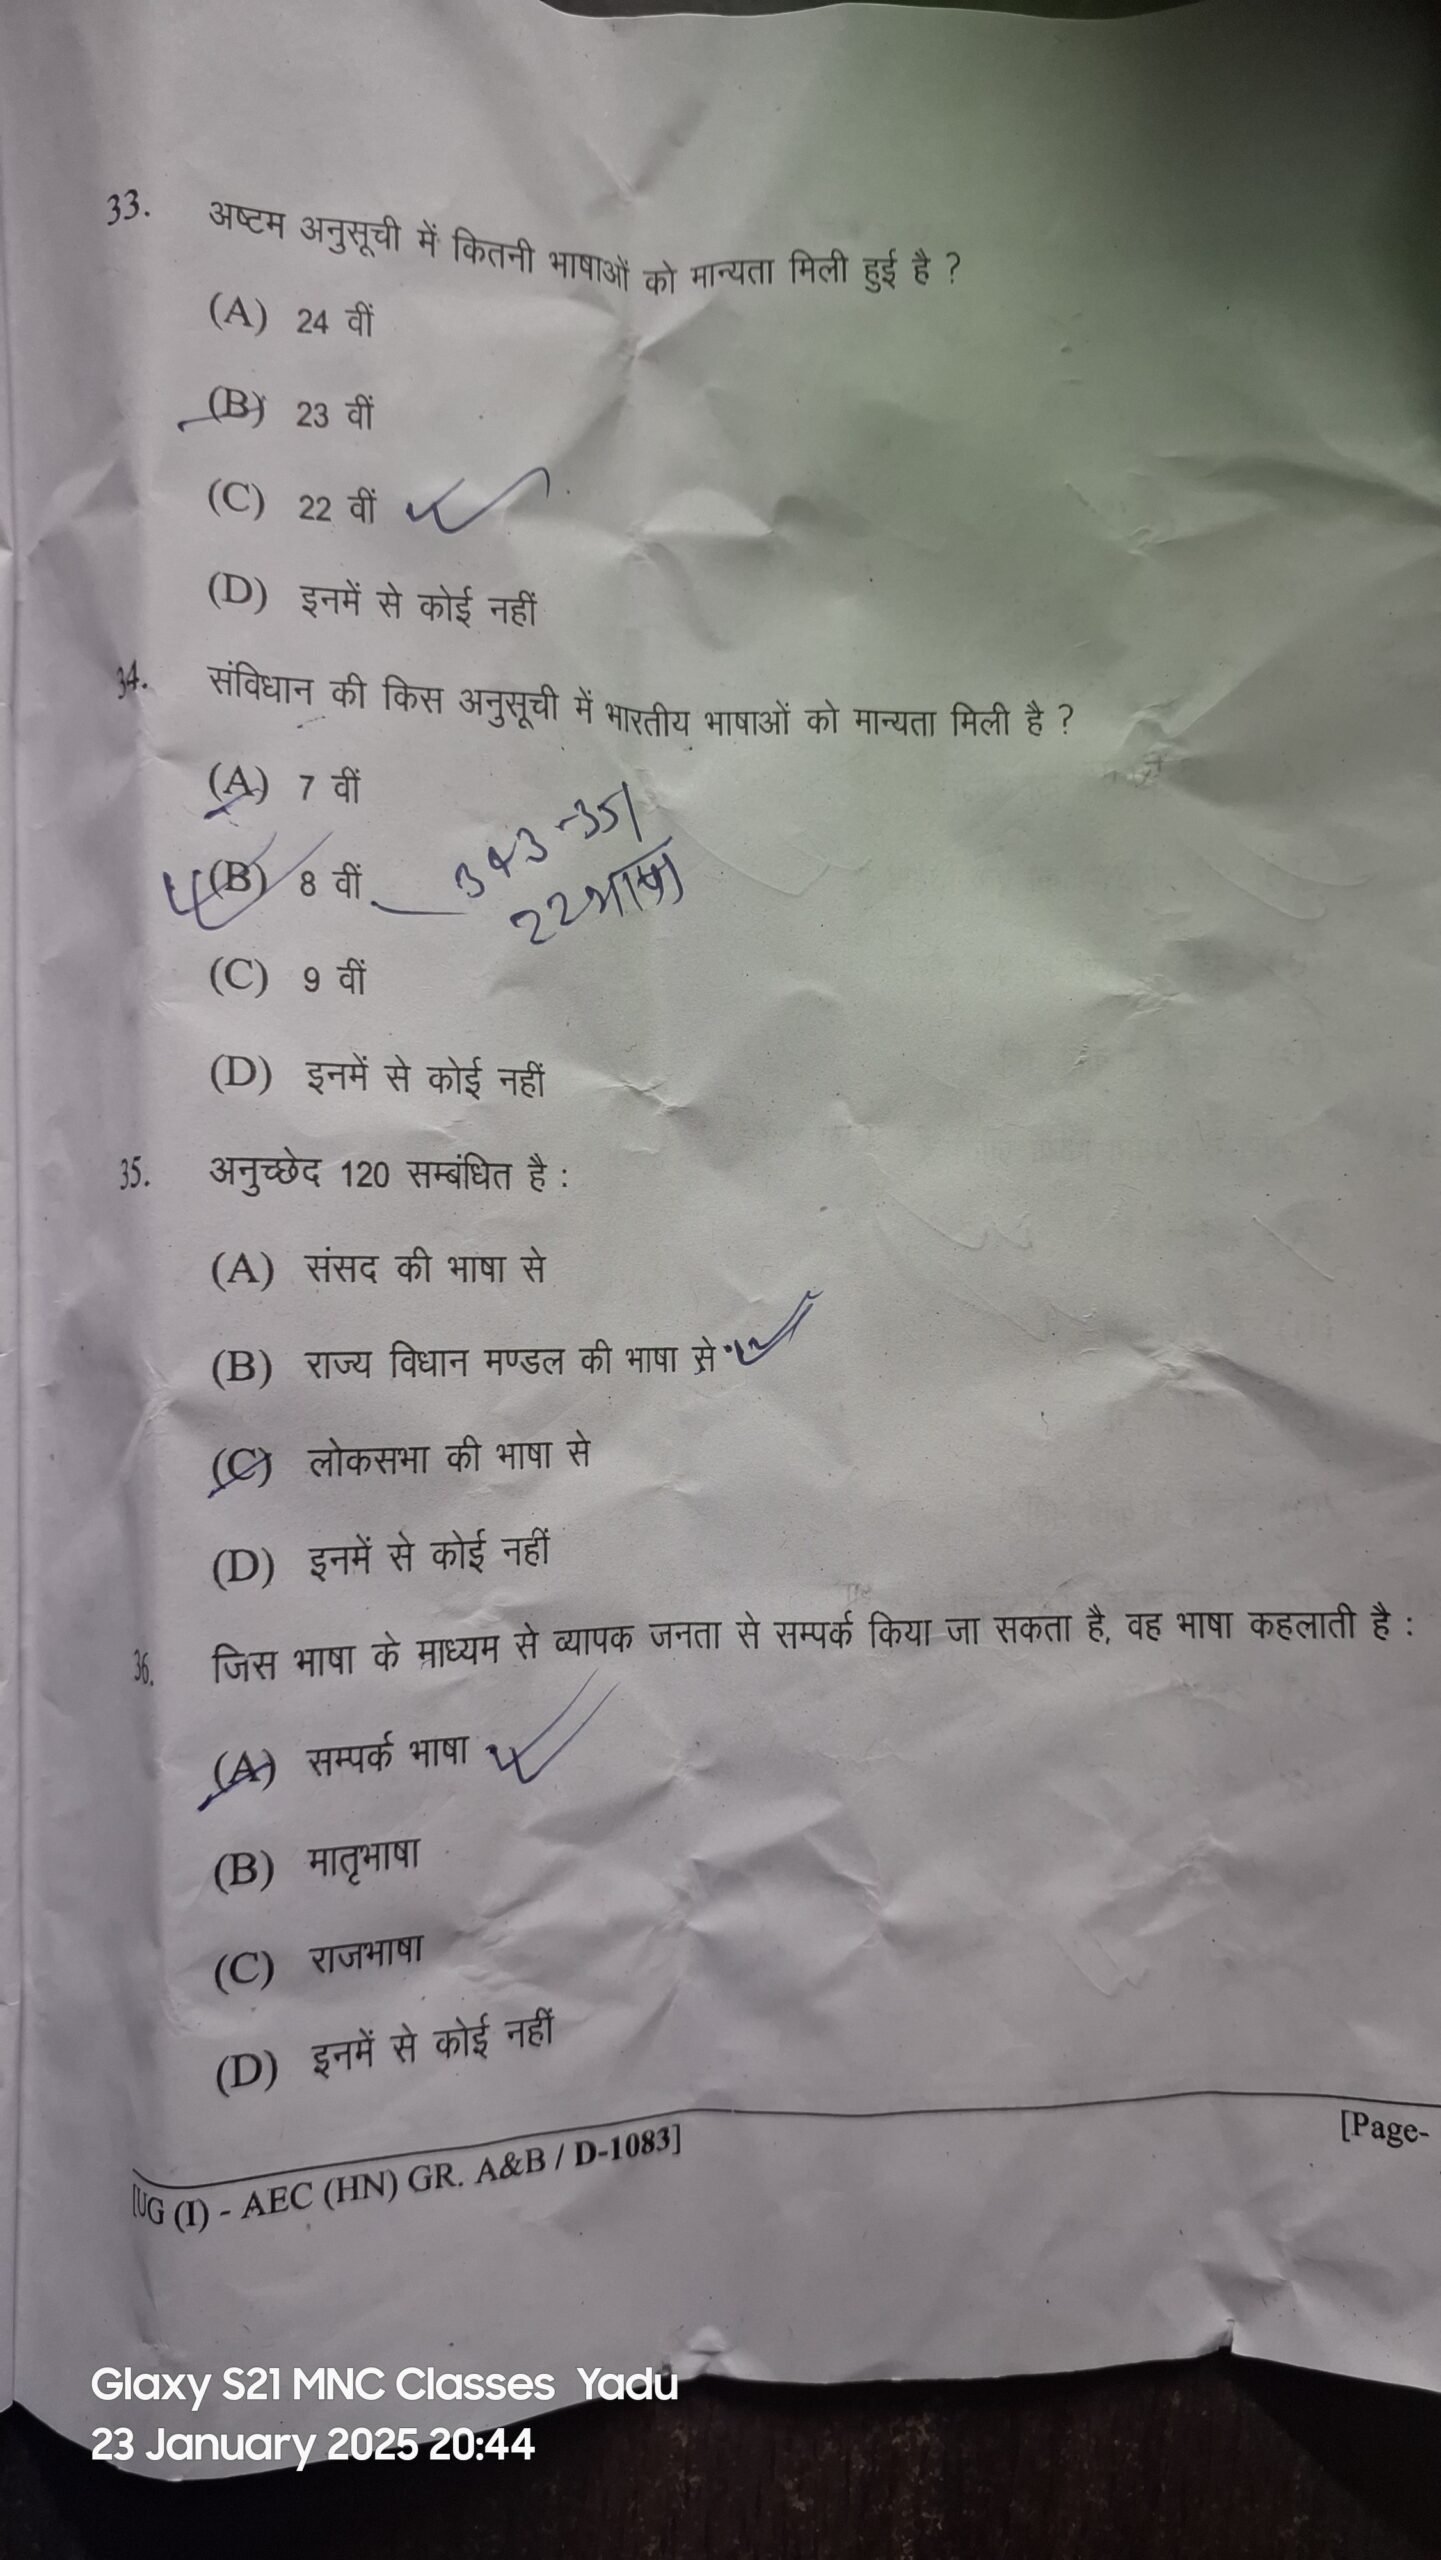 33. अष्टम अनुसूची में कितनी भाषाओं को मान्यता मिली हुई है ?
(A) 24 वीं
(B) 23 वीं
(C) 22 वीं
(D) इनमें से कोई नहीं
34. संविधान की किस अनुसूची में भारतीय भाषाओं को मान्यता मिली है ?
(A) 7 वीं
(B) 8 वीं
343-351
22 भाषा
(C) 9 वीं
(D) इनमें से कोई नहीं
35. अनुच्छेद 120 सम्बंधित है :
(A) संसद की भाषा से
(B) राज्य विधान मण्डल की भाषा से
(C) लोकसभा की भाषा से
(D) इनमें से कोई नहीं
36. जिस भाषा के माध्यम से व्यापक जनता से सम्पर्क किया जा सकता है, वह भाषा कहलाती है :
(A) सम्पर्क भाषा
(B) मातृभाषा
(C) राजभाषा
(D) इनमें से कोई नहीं
[UG (I) - AEC (HN) GR. A&B / D-1083] [Page-
Glaxy S21 MNC Classes Yadu
23 January 2025 20:44